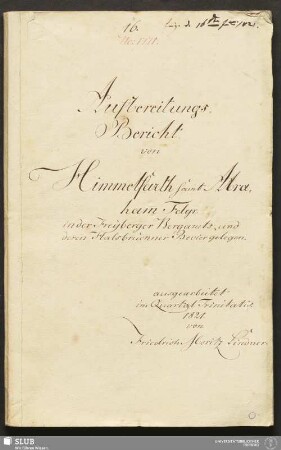 16.
Aufbereitungs
Bericht
von
Himmelfürth samt Abra
ham Felge
in der Freyberger Bergamts und
deren Halsbrückner Revier gelegen.
ausgearbeitet
im Quartal Trinitatis
1821
von
Friedrich Moritz Lindner
SLUB
Wir führen Wissen.